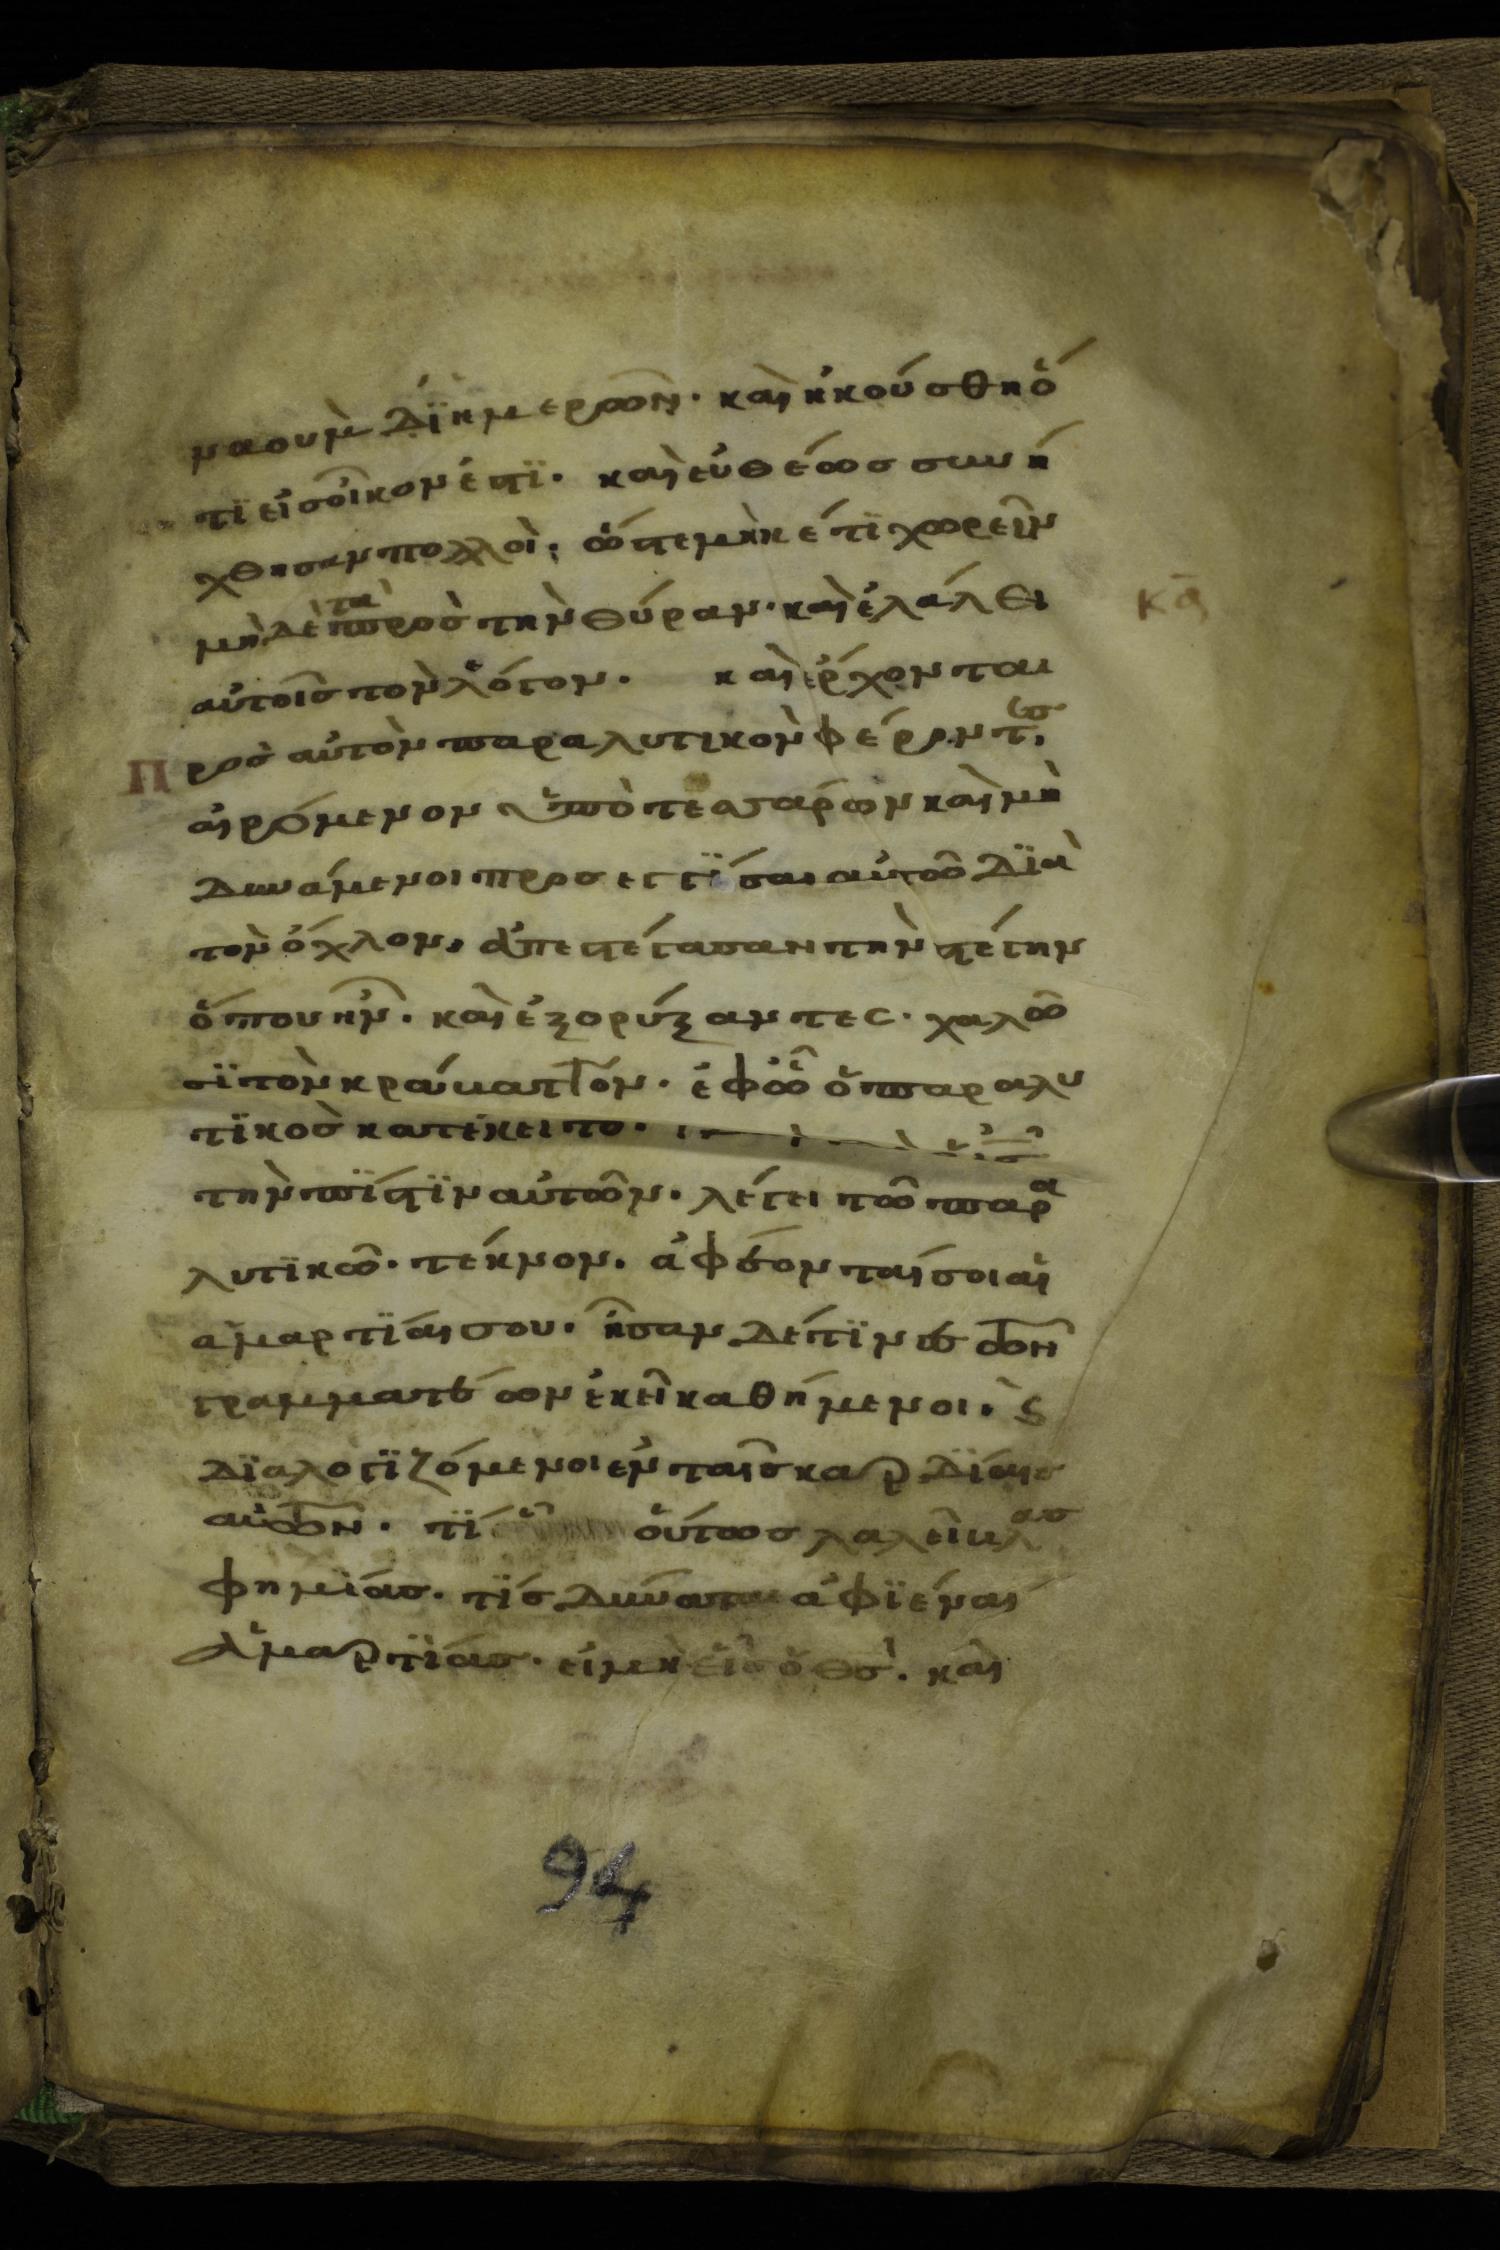 ναοὺμ δϊ ἡμερῶν· καὶ ἠκούσθη ὅ
τϊ εἰς οἶκον ἐστϊ· καὶ εὐθέωσ συνή
χθησαν πολλοὶ· ὥστε μὴκέτϊ χωρεῖν
μὴδὲ τα προσ τὴν θύραν· καὶ ἐλάλει
αὐτοῖσ τὸν λόγον· καὶ ἔρχονται
κα
προσ αὐτὸν παραλυτικὸν φέροντεσ,
αἰρόμενον ὑπὸ τεσσάρων καὶ μὴ
δυνάμενοι προσεγγϊσαι αὐτῶ δϊὰ
τὸν ὄχλον, ἀπεστέγασαν τὴν στέγην
ὅπου ἦν· καὶ ἐξορύξαντες· χαλῶ
σϊ τὸν κράβαττον· ἐφ ὧ ὁ παραλυ
τϊκὸσ κατέκειτο·
τὴν πϊστϊν αὐτῶν· λέγει τῶ παρα
λυτϊκῶ· τέκνον· ἀφέονται σοι αἱ
ἁμαρτϊαι σου· ἦσαν δέ τϊνεσ τῶν
γραμματέων ἐκεῖ καθήμενοι· ϗ
δϊαλογϊζόμενοι ἐν ταῖσ καρδϊαισ
αὐτῶν· τϊ οὕτωσ λαλεῖ βλασ
φημϊασ· τϊσ δύναται ἀφϊέναι
ἁμαρτϊασ· εἰ μὴ εἷσ ὁ θσ· καὶ
94